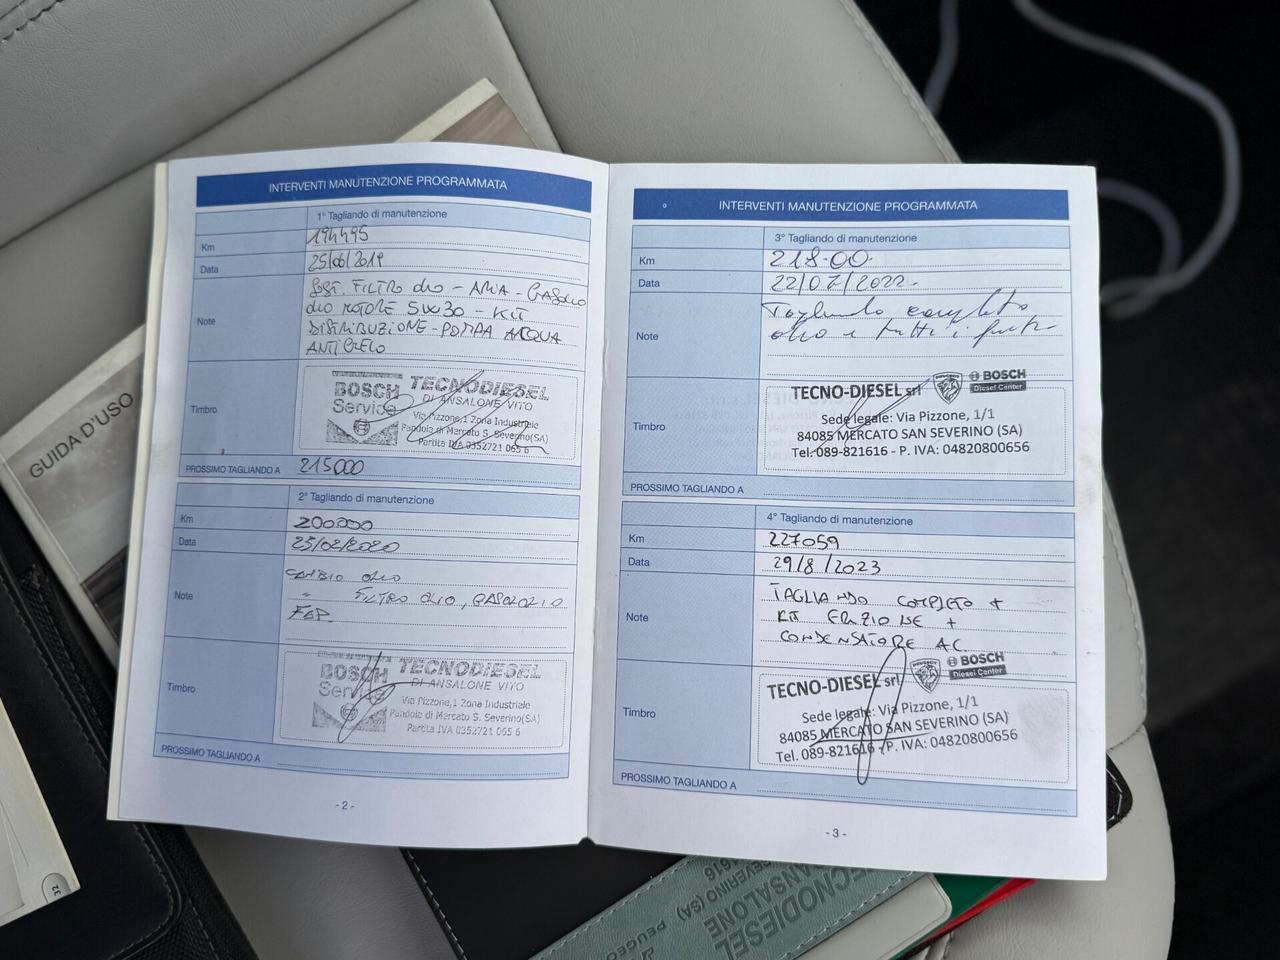 INTERVENTI MANUTENZIONE PROGRAMMATA
1° Tagliando di manutenzione
Km 194495
Data 25/06/2019
Note SOST. FILTRO OLIO - ARIA - GASOLIO
OLIO MOTORE 5W30 - KIT
DISTRIBUZIONE - POMPA ACQUA
ANTIGELO
Timbro
BOSCH Service
TECNODIESEL
DI ANSALONE VITO
Via Pizzone,1 Zona Industriale
Pandola di Mercato S. Severino(SA)
Partita IVA 0352721 065 6
PROSSIMO TAGLIANDO A 215000
2° Tagliando di manutenzione
Km 200000
Data 25/02/2020
Note CAMBIO OLIO
" FILTRO OLIO, GASOLIO
FAP.
Timbro
BOSCH Service
TECNODIESEL
DI ANSALONE VITO
Via Pizzone,1 Zona Industriale
Pandola di Mercato S. Severino(SA)
Partita IVA 0352721 065 6
PROSSIMO TAGLIANDO A
- 2 -
INTERVENTI MANUTENZIONE PROGRAMMATA
3° Tagliando di manutenzione
Km 218.00.
Data 22/07/2022.
Note Tagliando completo
olio e tutti i filtri
Timbro
TECNO-DIESEL srl PEUGEOT BOSCH
Diesel Center
Sede legale: Via Pizzone, 1/1
84085 MERCATO SAN SEVERINO (SA)
Tel. 089-821616 - P. IVA: 04820800656
PROSSIMO TAGLIANDO A
4° Tagliando di manutenzione
Km 227059
Data 29/8/2023
Note TAGLIANDO COMPLETO +
KIT +
CONDENSATORE A.C.
Timbro
TECNO-DIESEL srl PEUGEOT BOSCH
Diesel Center
Sede legale: Via Pizzone, 1/1
84085 MERCATO SAN SEVERINO (SA)
Tel. 089-821616 - P. IVA: 04820800656
PROSSIMO TAGLIANDO A
- 3 -
GUIDA D'USO
32
TECNODIESEL
ANSALONE
SEVERINO (SA)
PEUGEO